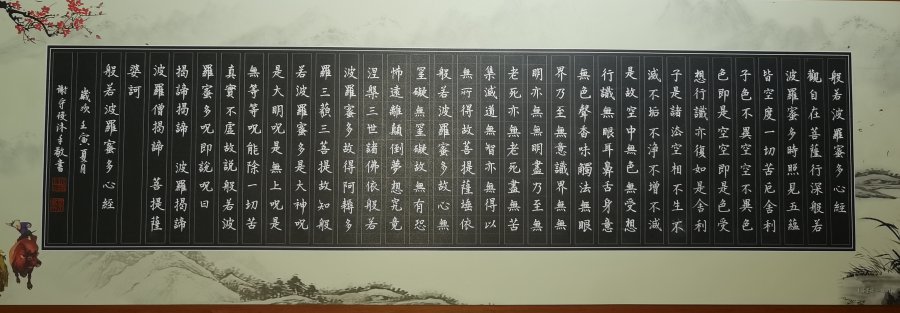 般若波羅蜜多心經
觀自在菩薩行深般若
波羅蜜多時照見五蘊
皆空度一切苦厄舍利
子色不異空空不異色
色即是空空即是色受
想行識亦復如是舍利
子是諸法空相不生不
滅不垢不淨不增不減
是故空中無色無受想
行識無眼耳鼻舌身意
無色聲香味觸法無眼
界乃至無意識界無無
明亦無無明盡乃至無
老死亦無老死盡無苦
集滅道無智亦無得以
無所得故菩提薩埵依
般若波羅蜜多故心無
罣礙無罣礙故無有恐
怖遠離顛倒夢想究竟
涅槃三世諸佛依般若
波羅蜜多故得阿耨多
羅三藐三菩提故知般
若波羅蜜多是大神呪
是大明呪是無上呪是
無等等呪能除一切苦
真實不虛故說般若波
羅蜜多呪即說呪曰
揭諦揭諦 波羅揭諦
波羅僧揭諦 菩提薩
婆訶
般若波羅蜜多心經
歲次壬寅夏月
謝守優沐手敬書